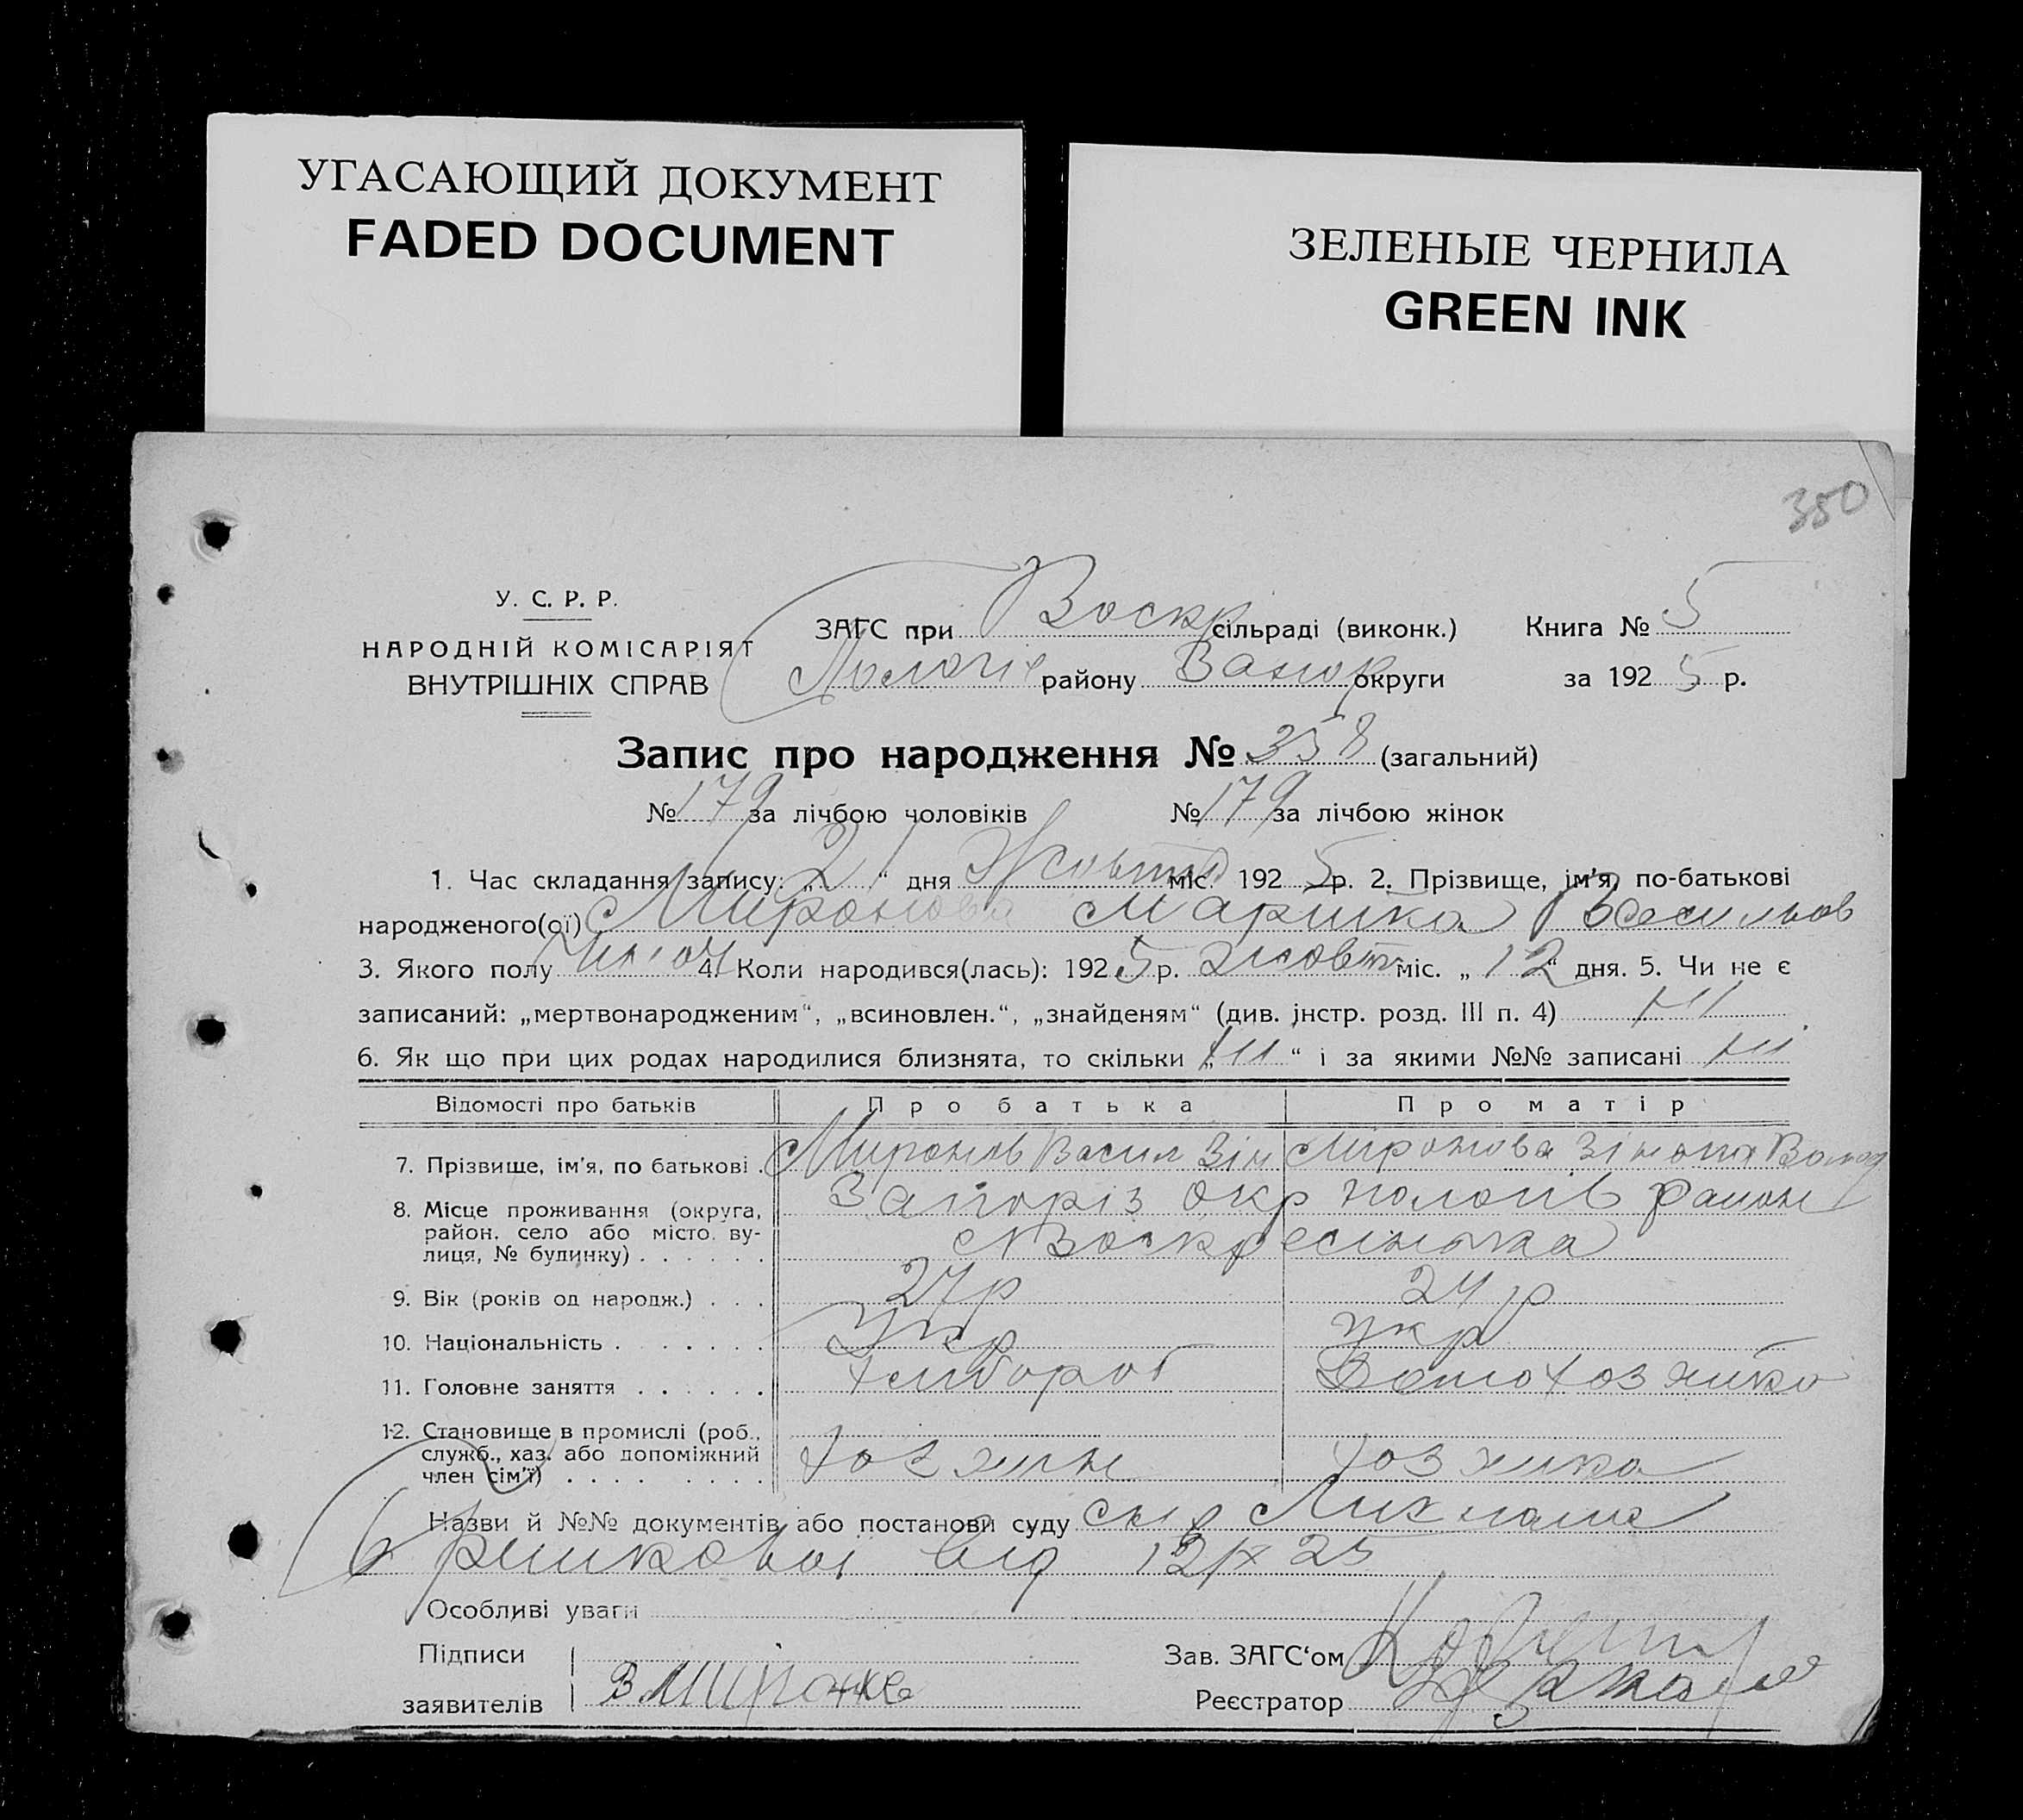 УГАСАЮЩИЙ ДОКУМЕНТ
FADED DOCUMENT
ЗЕЛЕНЫЕ ЧЕРНИЛА
GREEN INK
350
У. С. Р. Р.
НАРОДНІЙ КОМІСАРІЯТ
ВНУТРІШНІХ СПРАВ
ЗАГС при Воскр сільраді (виконк.) Книга № 5
району Запор округи за 192 5 р.
Запис про народження № 358 (загальний)
№ 179 за лічбою чоловіків № 179 за лічбою жінок
1. Час складання запису: „ 21 “ дня Жовтня міс. 192 5 р. 2. Прізвище, ім’я, по-батькові
народженого(ої) Миронова Марийка Васильов
3. Якого полу жіноч 4. Коли народився(лась): 192 5 р. жовтн міс. „ 12 “ дня. 5. Чи не є
записаний: „мертвонародженим“, „всиновлен.“, „знайденям“ (див. інстр. розд. III п. 4) ні
6. Як що при цих родах народилися близнята, то скільки „ ні “ і за якими №№ записані ні
Відомості про батьків Про батька Про матір
7. Прізвище, ім’я, по батькові . Миронов Васил Зін Миронова Зінаїда
8. Місце проживання (округа, Запоріз окр пологів район
район. село або місто. ву- с Воскресінька
лиця, № будинку) . . . . . .
9. Вік (років од народж.) . . . 27 р 24 р
10. Національність . . . . . . . Укр Укр
11. Головне заняття . . . . . . хлібороб Домохозяйка
12. Становище в промислі (роб.,
служб., хаз. або допоміжний хозяин хозяйка
член сім’ї) . . . . . . . . .
Назви й №№ документів або постанови суду
від 12/X 25
Особливі уваги
Підписи Зав. ЗАГС‘ом
заявителів Реєстратор